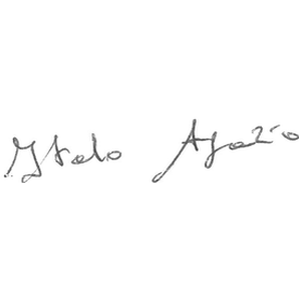 Italo Agazio